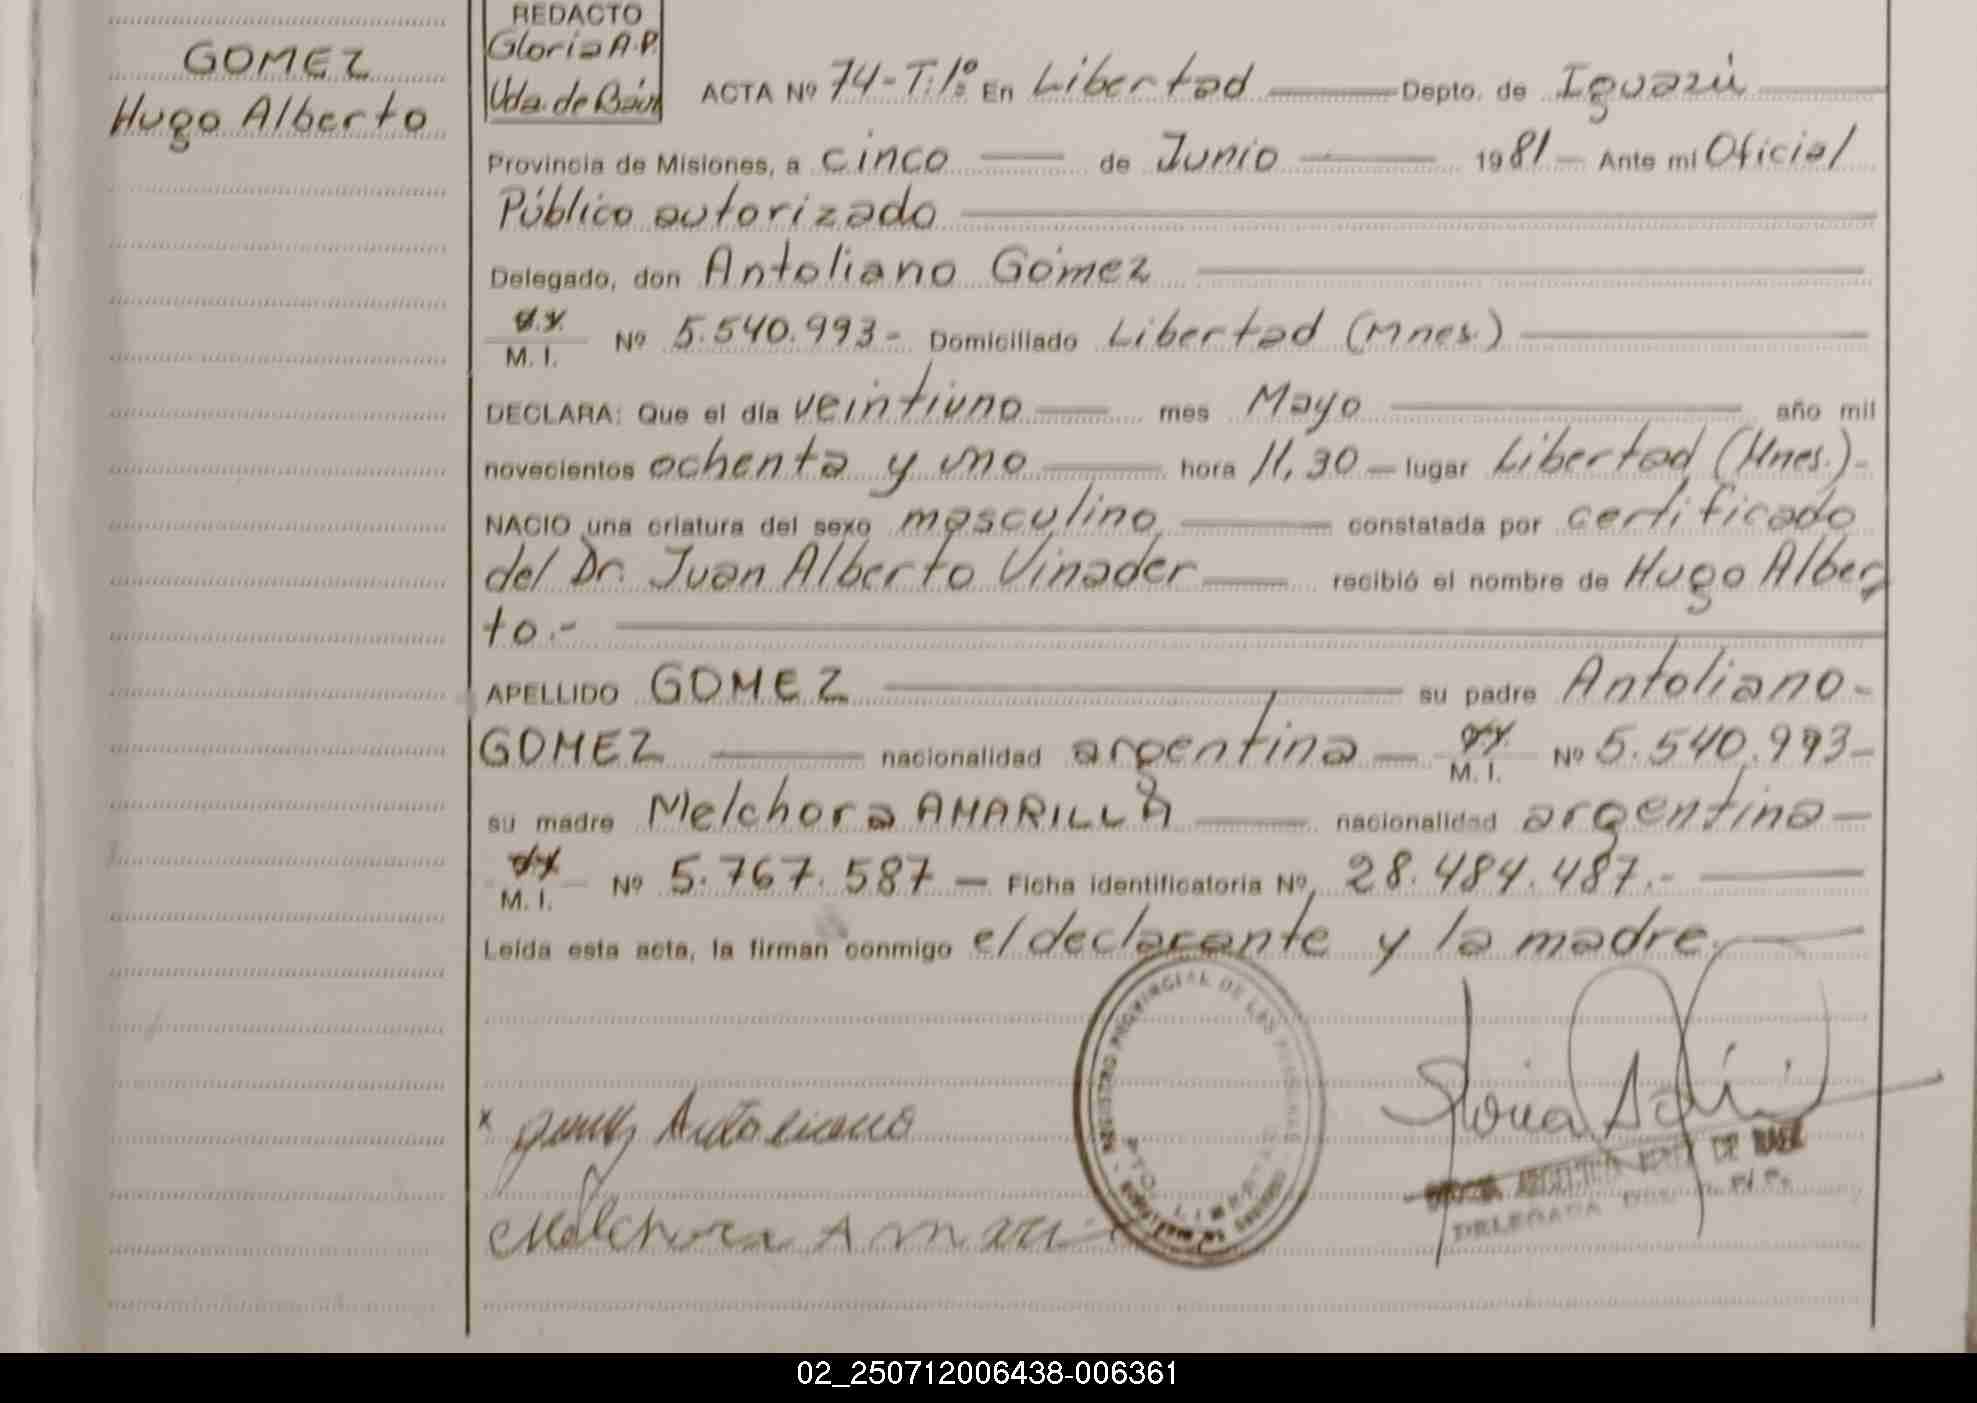 GOMEZ
Hugo Alberto
REDACTO
Gloria A.P.
Vda. de Báez
ACTA Nº 74-T:1º En Libertad Depto. de Iguazú
Provincia de Misiones, a cinco de Junio 1981 - Ante mi Oficial
Público autorizado
Delegado, don Antoliano Gómez
M. I. Nº 5.540.993 - Domiciliado Libertad (Mnes.)
DECLARA: Que el día veintiuno mes Mayo año mil
novecientos ochenta y uno hora 11,30 - lugar Libertad (Mnes.) -
NACIO una criatura del sexo masculino, constatada por certificado
del Dr. Juan Alberto Vinader recibió el nombre de Hugo Alber
to.-
APELLIDO GOMEZ su padre Antoliano -
GOMEZ nacionalidad argentina - M. I. Nº 5.540.993 -
su madre Melchora AMARILLA nacionalidad argentina -
M. I. Nº 5.767.587 - Ficha identificatoria Nº 28.484.487.-
Leída esta acta, la firman conmigo el declarante y la madre.
REGISTRO PROVINCIAL DE LAS PERSONAS
PTO. LIBERTAD
x Gomez Antoliano
Melchora Amari
Gloria
DE BAEZ
DELEGADA
02_250712006438-006361